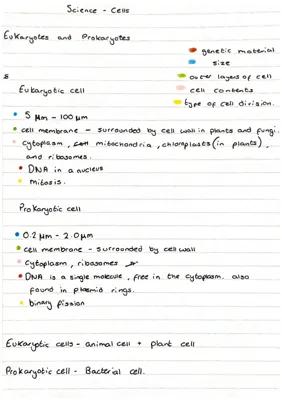 Science - Cells
Eukaryotes and Prokaryotes
genetic material
size
outer layers of cell
cell contents
type of cell division.
Eukaryotic cell
5 µm - 100 µm
cell membrane - surrounded by cell wall in plants and fungi.
cytoplasm, mitochondria, chloroplasts (in plants),
and ribosomes.
DNA in a nucleus
mitosis.
Prokaryotic cell
0.2 µm - 2.0 µm
cell membrane - surrounded by cell wall
Cytoplasm, ribosomes
DNA is a single molecule, free in the cytoplasm. also
found in plasmid rings.
binary fission
Eukaryotic cells - animal cell + plant cell
Prokaryotic cell - Bacterial cell.